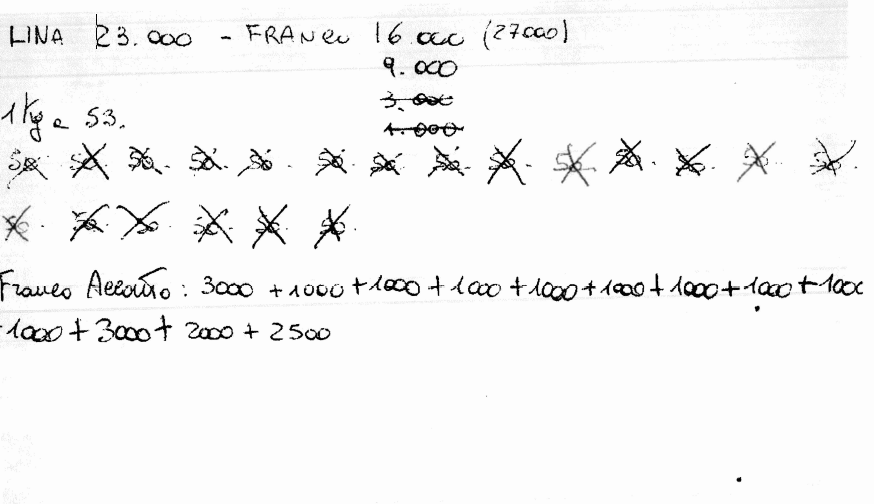 LINA 23.000 - FRANCO 16.000 (27000)
9.000
3.000
1.000
1 Kg a 53.
50 50 50. 50. 50. 50. 50. 50. 50. 50. 50. 50. 50. 50.
50. 50. 50. 50. 50. 50.
Franco Acconto: 3000 + 1000 + 1000 + 1000 + 1000 + 1000 + 1000 + 1000 + 1000
+ 1000 + 3000 + 2000 + 2500